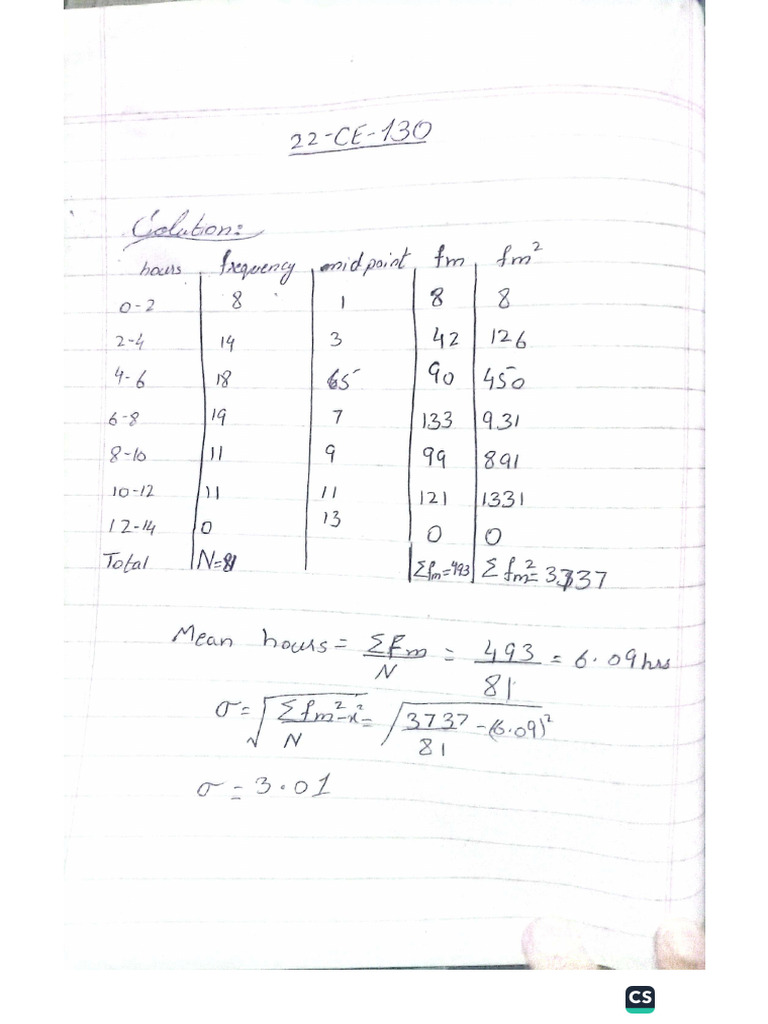 22-CE-130
Solution:
hours frequency midpoint fm fm²
0-2 8 1 8 8
2-4 14 3 42 126
4-6 18 5 90 450
6-8 19 7 133 931
8-10 11 9 99 891
10-12 11 11 121 1331
12-14 0 13 0 0
Total N=81 Σfm=493 Σfm²=3737
Mean hours = Σfm/N = 493/81 = 6.09hrs
σ = √(Σfm²/N - x²) = √(3737/81 - (6.09)²)
σ = 3.01
CS